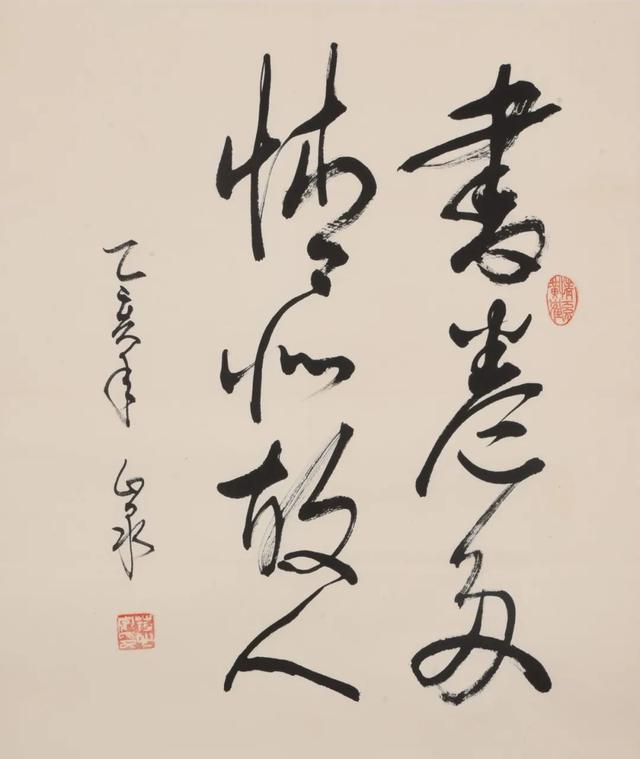 書卷多
情似故人
乙亥年 山泉